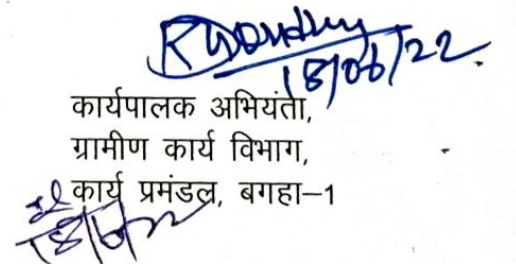 18/06/22
कार्यपालक अभियंता,
ग्रामीण कार्य विभाग,
कार्य प्रमंडल, बगहा–1